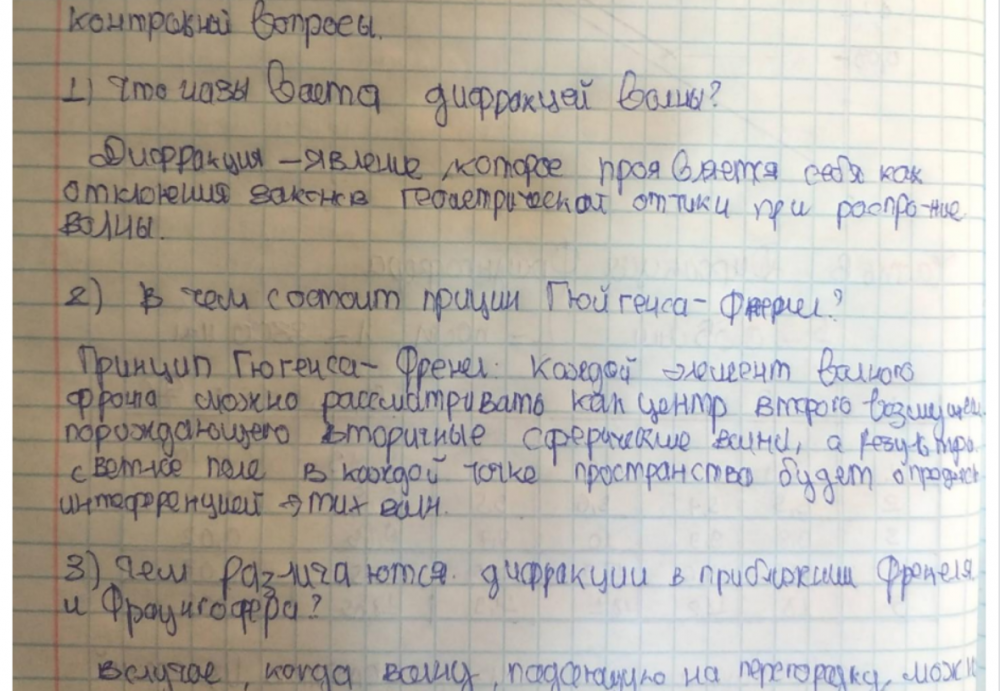 контрвной вопросы.
1) что назы вается дифракцей волны?
Дифракция – явление, которое прояввяется себя как
отклонения законов геометрической оптики при распро-ние
волны.
2) в чем состоит прицип Гюйгенса - Френел?
Принцип Гюгенса - Френел: Каждой элемент волного
фронта можно рассматривать как центр второго возмущен.
порождающего вторичные сферические волни, а резуьтир.
световое поле в каждой точке пространства будет определ
интеференцией этих волн.
3) чем различаются дифракции в приближении Френеля
и Фраунгофера?
в случае, когда волну, падающую на перегородку, можн